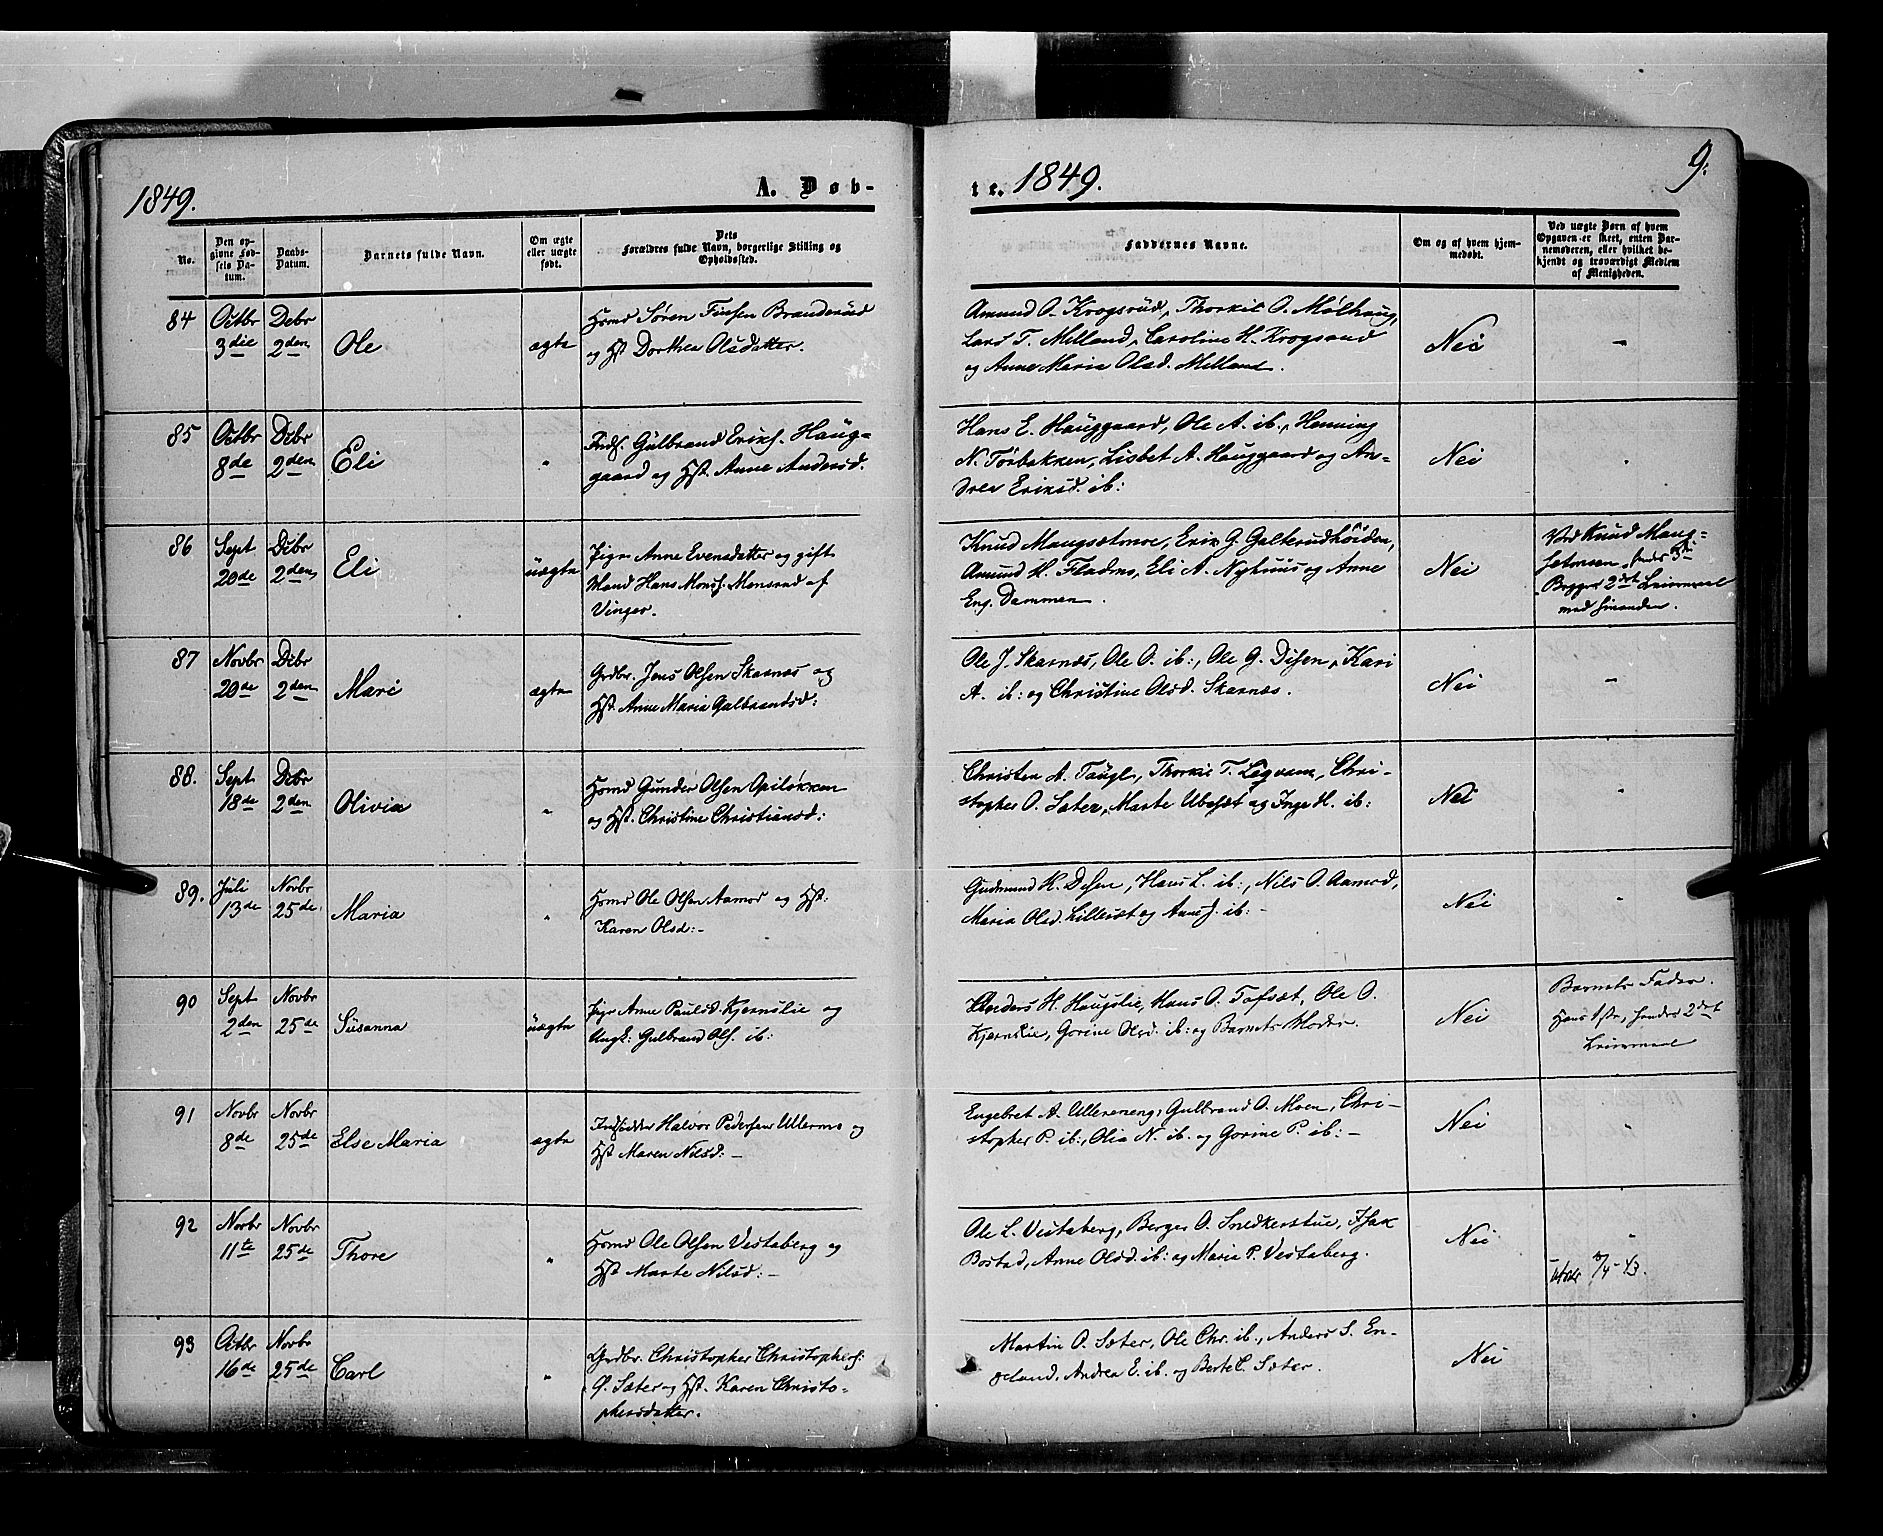 1849.
A. Døb-
te. 1849.
9.
No.
Den op-
givne Fød-
sels Da-
tum.
Daabs-
Datum.
Barnets fulde Navn.
Om ægte
eller uægte
født.
Dets
Forældres fulde Navn, borgerlige Stilling og
Opholdssted.
Faddernes Navne.
Om og af hvem hjem-
medøbt.
Ved uægte Børn af hvem
Opgaven er skeet, enten Bar-
nemoderen, eller hvilket be-
kjendt og troværdigt Medlem
af Menigheden.
84
Octbr
3die
Debr
2den
Ole
ægte
Hsmd Søren Finsen Branderüd
og Hst Dorthea Olsdatter.
Amund O. Krogsrüd, Thorkil O. Mølhaug,
Lars T. Melland, Caroline H. Krogsrud
og Anne Maria Olsd. Melland.
Nei
85
Octbr
8de
Debr
2den
Eli
"
Inds. Gülbrand Eriks. Haüg-
gaard og Hst. Anne Andersd.
Hans E. Haüggaard, Ole A. ib., Henning
N. Torbakken, Lisbet A. Hauggaard og An-
drea Eriksd. ib:
Nei
86
Sept
20de
Debr
2den
Eli
üægte
Pige Anne Evensdatter og gift
Mand Hans Mons. Monsrud af
Vinger.
Knud Mangsetmoe, Erik G. Galterudhøiden,
Amund H. Fladmo, Eli A. Nyhuus og Anne
Eng. Dammen.
Nei
Ved Knud Mang-
setmoen
Begges 2det Leiermaal
med hinanden.
87
Novbr
20de
Debr
2den
Mari
ægte
Grdbr. Jens Olsen Skarnes og
Hst. Anne Maria Gulbrandsd:
Ole J. Skarnæs, Ole O. ib:, Ole G. Disen, Kari
A. ib: og Christine Olsd. Skarnæs.
Nei
88.
Sept
18de
Debr
2den
Olivia
"
Hsmd Gunder Olsen Opiløkken
og Hst. Christine Christiansd:
Christen A. Taugl, Thorkil T. Ligvam, Chri-
stopher O. Sæter, Marte Ubesæt og Inge H. ib:
Nei
"
89.
Juli
13de
Novbr
25de
Maria
"
Hsmd Ole Olsen Aamod og Hst:
Karen Olsd:-
Gudmund H. Disen, Hans L. ib:, Nils O. Aamod,
Maria Olsd. Lilleset og Anne J. ib:-
Nei
"
90
Sept
2den
Novbr
25de
Süsanna
üægte
Pige Anne Paulsd Kjernslie og
Ungk: Gulbrand Ols. ib:
Anders H. Haugslie, Hans O. Tofsæt, Ole O.
Kjernslie, Gorine Olsd. ib: og Barnets Moder.
Nei
Barnets Fader.
Hans 1ste, hendes 2det
Leiermaal
91
Novbr
8de
Novbr
25de
Else Maria
ægte
Indsidder Halvor Pedersen Ullerns og
Hst Maren Nilsd:-
Engebret A. Ullereneng, Gulbrand O. Moen, Chri-
stopher P. ib:, Olia N. ib. og Gorine P. ib:-
Nei
"
92
Novbr
11te
Novbr
25de
Thore
"
Hsmd Ole Olsen Vestaberg og
Hst Marte Nilsd:-
Ole L. Vestaberg, Berger O. Snedkerstue, Isak
Bostad, Anne Olsd. ib: og Maria P. Vestaberg.
Nei
"
93
Octbr
16de
Novbr
25de
Carl
"
Grdbr. Christopher Christophers:
Ø. Sæter og Hst. Karen Christo-
phersdatter.
Martin O. Sæter, Ole Chr. ib., Anders S. En-
geland, Andrea E. ib. og Berte C. Sæter.
Nei